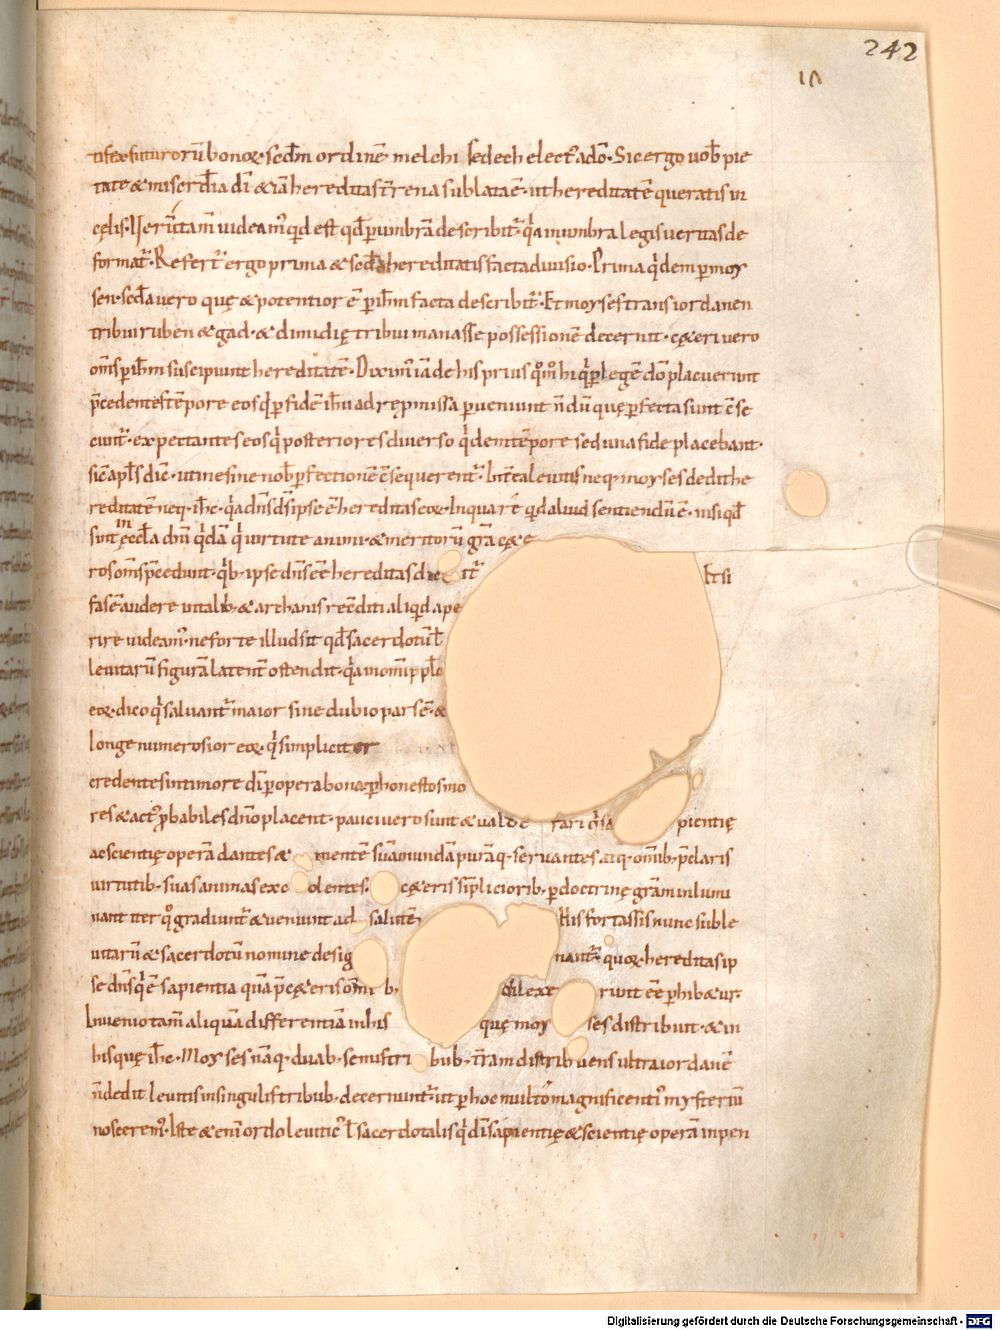 242
tifex futurorū bonoꝝ· scdm ordinē melchisedech elect' a dō· Sic ergo uob̄ pie
tate & miscrdia dī & iā hereditas t̄rena sublata ē· ut hereditatē queratis in
cęlis· Uerūtam̄ uideam' qd est qd p umbrā describit̄· q̄a in umbra legis ueritas de
format̄· Refert̄ ergo prima & scda hereditatis facta diuisio· Prima q̄dem p moy
sen· scda uero quę & potentior ē p ihm facta describit̄· Et moyses trans iordanen
tribui ruben & gad· & dimidię tribui manasse possessionē decernit· c&eri uero
om̄s p ihm suscipiunt hereditatē· Dixim' iā de his prius qm̄o hi q̄ p legē dō placuerunt
p̄cedentes tēpore eos q̄ p fidē ihū ad rępmissa p ueniunt n̄dū quę pfecta sunt c̄se
cunt̄· expectantes eos q̄ posteriores diuerso q̄dem tēpore sed una fide placebant·
sic apl's dic̄· ut ne sine nob̄ pfectionē c̄sequerent̄· Int̄ea leuitis neq· moyses dedit he
reditatē neq· ihc· q̄a dn̄s ds̄ ipse ē hereditas eoꝝ· In qua rē qd aliud sentiendū ē· nisi qd
sunt in ęccla dn̄i q̄dā q̄ uirtute animi & meritorū gr̄a c&e
ros om̄s p̄cedunt· q̄b· ipse dn̄s eē hereditas dicit̄ Et si
fas ē audere in talib· & archanis recd̄iti aliqd ape
rire uideam'· ne forte illud sit qd sacerdotū l
leuitarū figurā latent̄ ostendit· q̄a in om̄i pplo
eoꝝ dico q̄ saluant̄ maior sine dubio pars ē· &
longe numerosior eoꝝ· q̄ simpliciter
credentes in timore dī p opera bona· p honestos mo
res & act' pbabiles dn̄o placent· pauci uero sunt & ualde rari q̄ sapientię
ac scientię operā dantes & mentē suā mundā purāq· seruantes atq· om̄ib· p̄claris
uirtutib· suas animas excolentes· c&eris sipliciorib· p doctrinę gr̄am inlumi
nant iter qo gradiunt̄ & ueniunt ad salutē His fortassis nunc sub le
uitarū & sacerdotū nomine designant̄· quoꝝ hereditas ip
se dn̄s q̄ ē sapientia quā p̄ c&eris om̄ib· dilexerunt eē phib&ur·
Inuenio tam̄ aliquā differentiā in his quę moyses distribuit· & in
his quę ihc· Moyses nāq· duab· semis tribub· t̄ram distribuens ultra iordanē
n̄ dedit leuitis in singulis tribub· decernunt̄· ut p hoc multo magnificenti' mysteriū
noscerem'· Iste & enī ordo leuitic' l sacerdotalis q̄ dī sapientię & scientię operā inpen
Digitalisierung gefördert durch die Deutsche Forschungsgemeinschaft - DFG